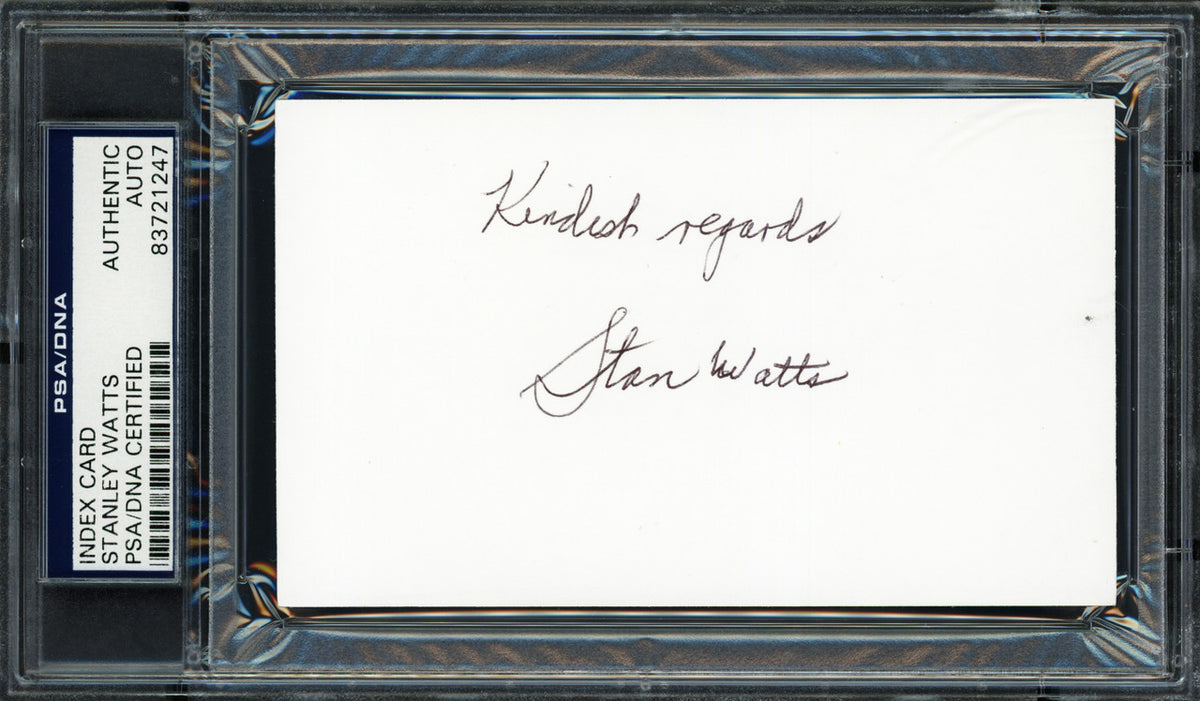 PSA/DNA
INDEX CARD
STANLEY WATTS
PSA/DNA CERTIFIED
AUTHENTIC
AUTO
83721247
Kindest regards
Stan Watts